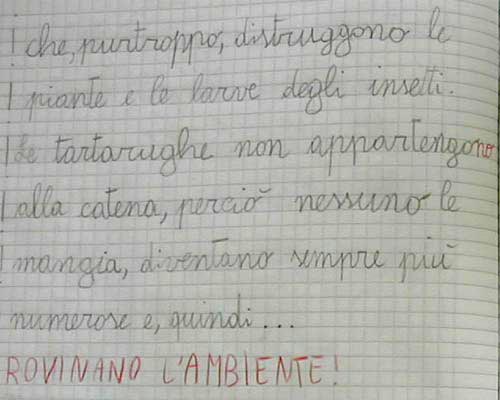 che, purtroppo, distruggono le
piante e le larve degli insetti.
Le tartarughe non appartengono
alla catena, perciò nessuno le
mangia, diventano sempre più
numerose e, quindi...
ROVINANO L'AMBIENTE!